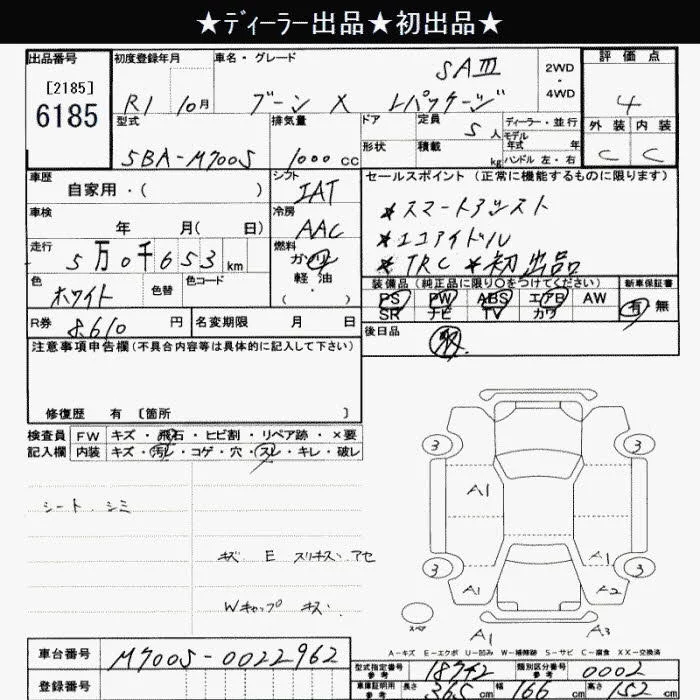 ★ディーラー出品★初出品★
出品番号 初度登録年月 車名・グレード 評価点
[2185] 6185
R1 10月 ブーン X Lパッケージ SAIII 2WD・4WD 4
型式 排気量 ドア 定員 5人 ディーラー・並行 外装 内装
モデル年式 年
5BA-M700S 1000cc 形状 積載 kg ハンドル 左・右 C C
車歴 シフト セールスポイント (正常に機能するものに限ります)
自家用・( ) IAT
車検 冷房 *スマートアシスト
年 月( 日) AAC *エコアイドル
走行 5万0千653km 燃料 ガソリン *TRC *初出品
色 ホワイト 色替 色コード 軽油・( ) 装備品(純正品に限り○をつけてください) 新車保証書
PS PW ABS エアB AW 有 無
SR ナビ TV カワ
R券 8,610円 名変期限 月 日 後日品
注意事項申告欄(不具合内容等は具体的に記入して下さい)
修復歴 有 [箇所 ]
検査員 FW キズ・飛石・ヒビ割・リペア跡・×要
記入欄 内装 キズ・汚レ・コゲ・穴・スレ・キレ・破レ
3 3
A1
シート.シミ
キズ E スリキズ アセ
A1
3 3
A1 A2
Wキャップ キズ
スペア A1 A3
A-キズ E-エクボ U-凹み W-補修跡 S-サビ C-腐食 XX-交換済
車台番号 M700S-0022962
型式指定番号 参考 18742 類別区分番号 参考 0002
登録番号 車庫証明用 参考 長さ 365cm 幅 166cm 高さ 152cm